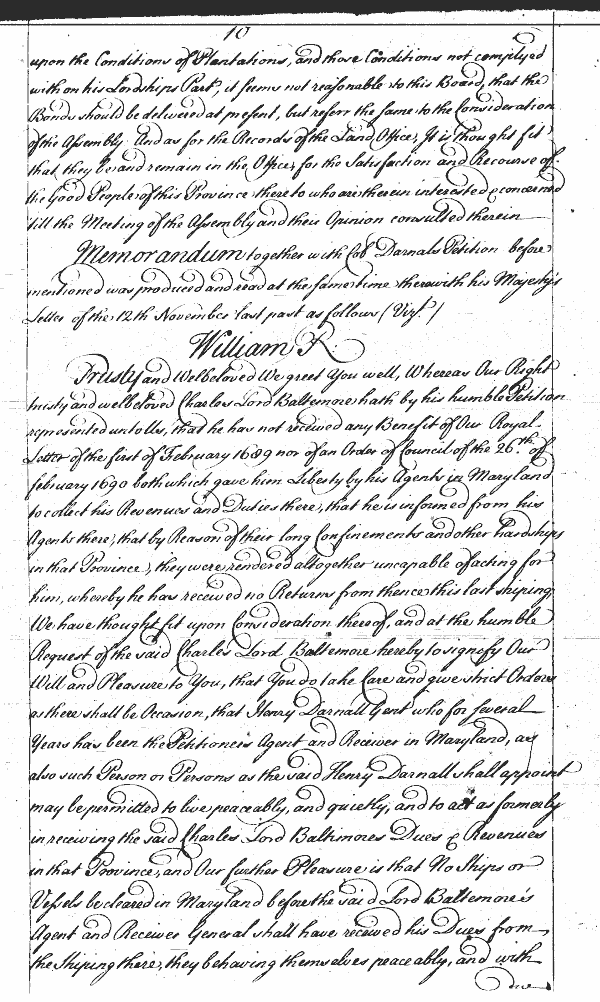 10
upon the Conditions of Plantations, and those Conditions not complyed
with on his Lordships Part, it seems not reasonable to this Board, that the
Bonds should be delivered at present, but referr the same to the Consideration
of the Assembly. And as for the Records of the Land Office, It is thought fit
that they be and remain in the Office, for the Satisfaction and Recourse of
the Good People of this Province thereto who are therein interested & concerned
till the Meeting of the Assembly and their Opinion consulted therein
Memorandum together with Col Darnals Petition before
mentioned was produced and read at the same time therewith his Majesty's
Letter of the 12th November last past as follows (Vizt)
William R.
Trusty and Welbeloved We greet You well, Whereas Our Right
trusty and welbeloved Charles Lord Baltemore hath by his humble Petition
represented unto Us, that he has not received any Benefit of Our Royal
Letter of the first of February 1689 nor of an Order of Council of the 26th of
february 1690 both which gave him Liberty by his Agents in Maryland
to collect his Revenues and Duties there, that he is informed from his
Agents there, that by Reason of their long Confinements and other hardships
in that Province, they were rendered altogether uncapable of acting for
him, whereby he has received no Returns from thence this last shiping
We have thought fit upon Consideration thereof, and at the humble
Request of the said Charles Lord Baltemore hereby to signify Our
Will and Pleasure to You, that You do take Care and give strict Orders
as there shall be Occasion, that Henry Darnall Gent who for several
Years has been the Petitioners Agent and Receiver in Maryland, as
also such Person or Persons as the said Henry Darnall shall appoint
may be permitted to live peaceably, and quietly, and to act as formerly
in receiving the said Charles Lord Baltimores Dues & Revenues
in that Province, and Our further Pleasure is that No Ships or
Vessels be cleared in Maryland before the said Lord Baltemore's
Agent and Receiver General shall have received his Dues from
the Shiping there, they behaving themselves peaceably, and with
due